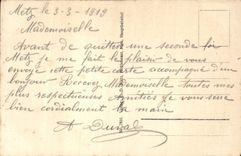 Metz le 3-3-1919
Mademoiselle
Avant de quitter une seconde foi
Metz je me fait le plaisir de vous
envoyé cette petite carte accompagné d'un
bonjour Recevez Mademoiselle toutes mes
plus respectueuses Amitiés je vous serre
bien cordialement la main
A Duval